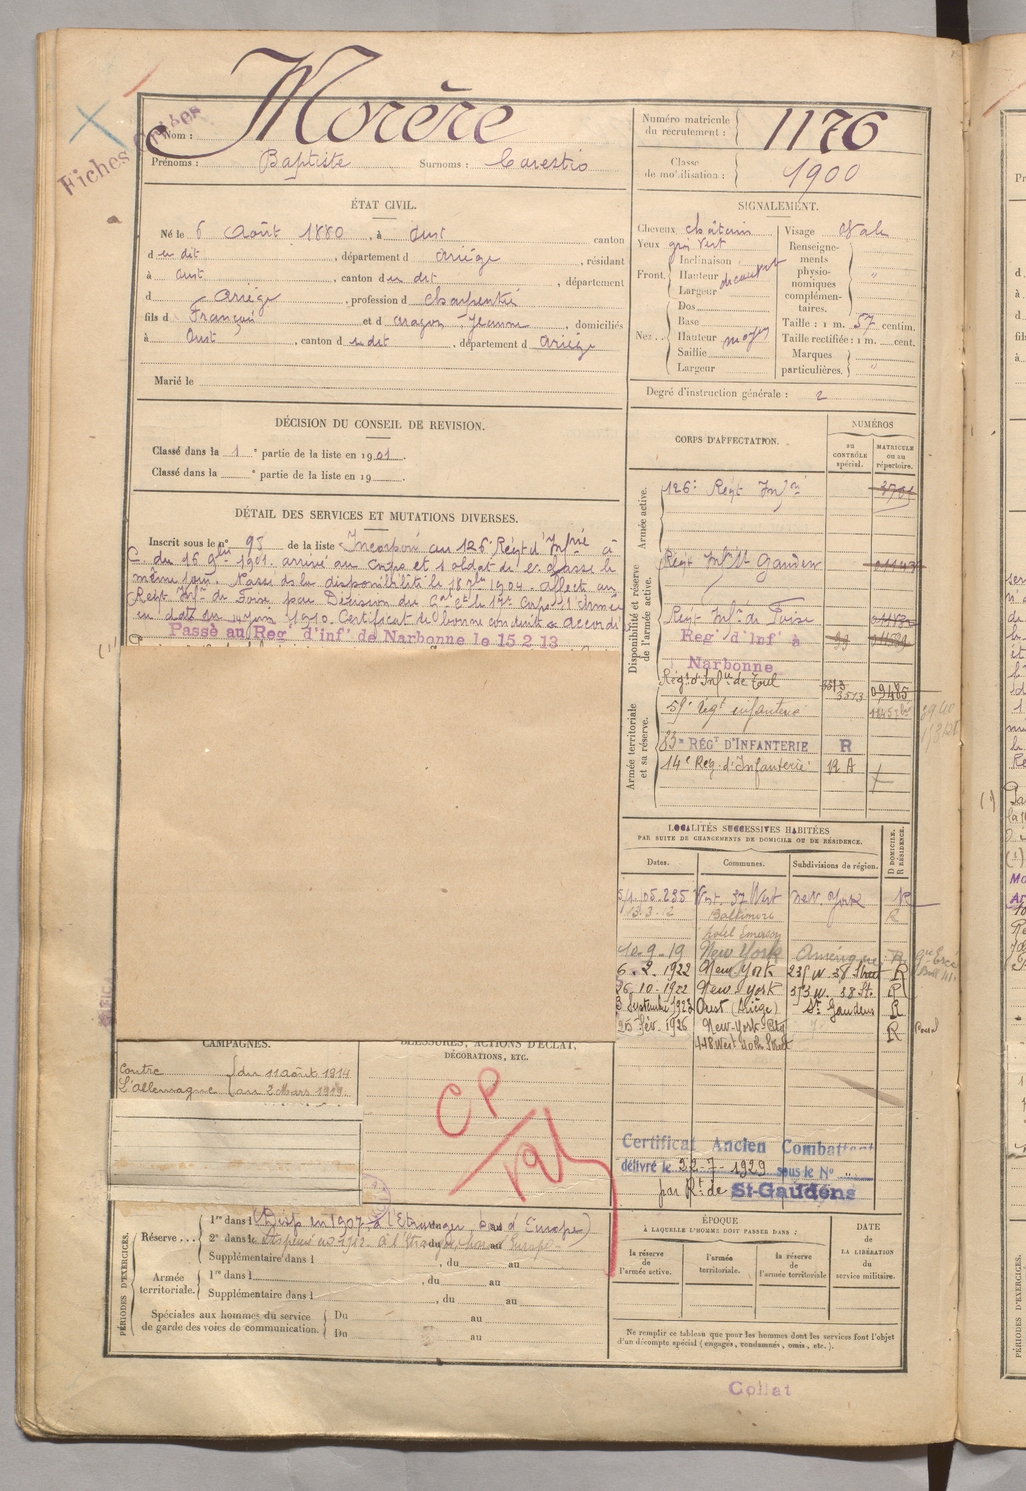 Fiches Grises
Nom : Morère
Prénoms : Baptiste Surnoms :
Numéro matricule du recrutement : 1176
Classe de mobilisation : 1900
ÉTAT CIVIL.
Né le 6 Août 1880, à Oust canton
du dit, département d Ariège, résidant
à Oust, canton du dit, département
d Ariège, profession d charpentier
fils d François et d Aragon Jeanne, domiciliés
à Oust, canton du dit, département d Ariège
Marié le
SIGNALEMENT.
Cheveux châtain
Yeux gris vert
Front. Inclinaison
Hauteur découvert
Largeur
Nez.. Dos
Base
Hauteur moyen
Saillie
Largeur
Visage Ovale
Renseignements physionomiques complémentaires. "
Taille : 1 m. 57 centim.
Taille rectifiée : 1 m. cent.
Marques particulières. "
Degré d'instruction générale : 2
DÉCISION DU CONSEIL DE REVISION.
Classé dans la 1e partie de la liste en 1901.
Classé dans la e partie de la liste en 19
DÉTAIL DES SERVICES ET MUTATIONS DIVERSES.
Inscrit sous le n° 95 de la liste Incorporé au 126e Régt d'Infrie à
C. du 16 9bre 1901. arrivé au corps et soldat de 2e classe le
même jour. Passé dans la disponibilité le 18 7bre 1904. Affecté au
Régt Infie de Foix par Décision du Gal Ct le 17e Corps d'Armée
en date du 14 Juin 1910. Certificat de bonne conduite accordé
Passé au Reg. d'inf' de Narbonne le 15.2.13
(1)
CORPS D'AFFECTATION.
NUMÉROS
au CONTRÔLE spécial.
MATRICULE ou au répertoire.
Armée active.
126e Régt Infie 3701
Disponibilité et réserve de l'armée active.
Régt Infie St Gaudens
Régt Infie de Foix
Reg' d'Inf' à Narbonne 99
Armée territoriale et sa réserve.
Régt d'Infie de Toul 3513 09485
59e Régt infanterie
83e RÉGT D'INFANTERIE R
14e Reg. d'Infanterie R A
LOCALITÉS SUCCESSIVES HABITÉES
PAR SUITE DE CHANGEMENTS DE DOMICILE OU DE RÉSIDENCE.
Dates. Communes. Subdivisions de région. D DOMICILE. R RÉSIDENCE.
235 West. 37 West New. York R
13.3.12 Baltimore R
hotel Emerson
10-9-19 New York Amérique R
6.2.1922 New York 235 W. 38 Street R
26.10.1922 New-York 353 W. 38 St. R
3 Septembre 1923 Oust (Ariège) St Gaudens R
26 Fév. 1926 New-York-City R
448 West 40th Street
CAMPAGNES.
Contre L'Allemagne du 11 août 1914
au 2 Mars 1919.
BLESSURES, ACTIONS D'ÉCLAT,
DÉCORATIONS, ETC.
CP
Certificat Ancien Combattant
délivré le 22-7-1929 sous le N° "
par Rt de St-Gaudens
PÉRIODES D'EXERCICES.
Réserve... 1re dans l (Disp en 1907, à l'Etranger, hors d'Europe)
2e dans le dispensé en 1912. à l'Etranger, hors d'Europe
Supplémentaire dans l , du au
Armée territoriale. 1re dans l , du au
Supplémentaire dans l , du au
Spéciales aux hommes du service de garde des voies de communication. Du au
Du au
ÉPOQUE
À LAQUELLE L'HOMME DOIT PASSER DANS :
la réserve de l'armée active.
l'armée territoriale.
la réserve de l'armée territoriale
DATE DE LA LIBÉRATION du service militaire.
Ne remplir ce tableau que pour les hommes dont les services font l'objet
d'un décompte spécial (engagés, condamnés, omis, etc.).
Collat